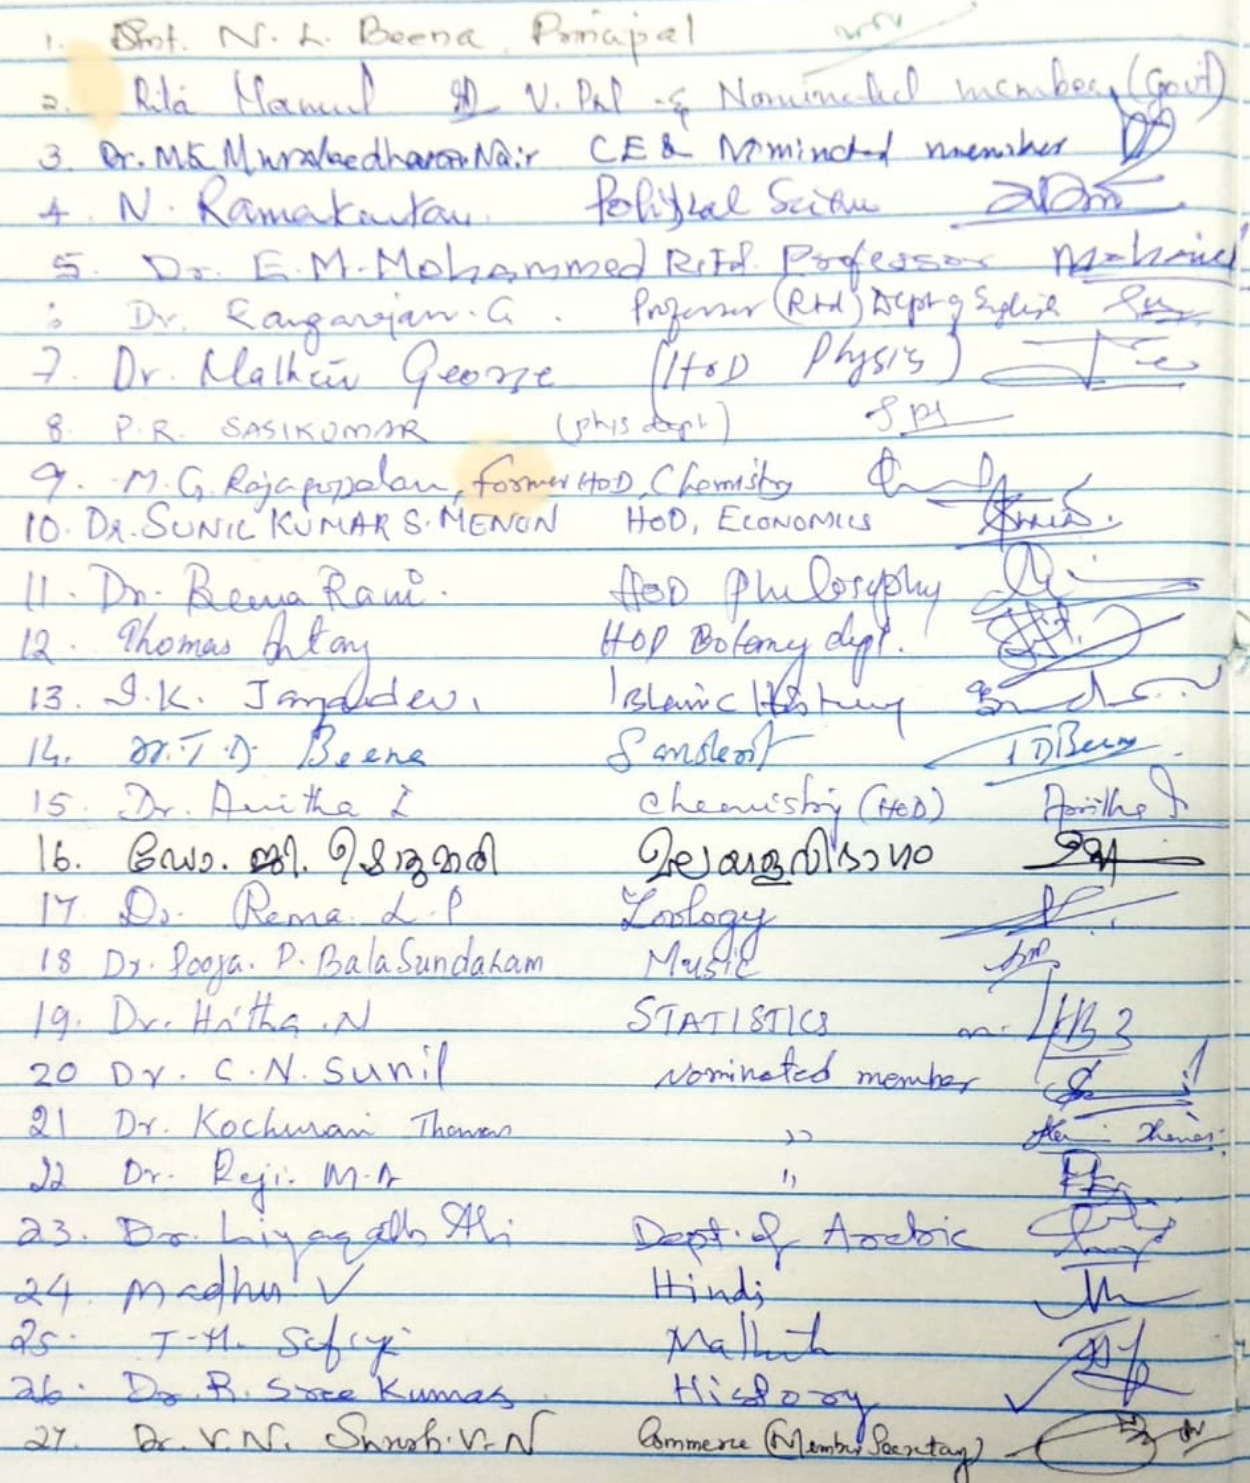 1. Smt. N. L. Beena, Principal
2. Rita Manuel V. Pnl & Nominated member (Govt)
3. Dr. MK Muraleedharan Nair CE & Nominated member
4. N. Ramakantan Political Science
5. Dr. E. M. Mohammed Retd. Professor
Dr. Rangarajan. G. Professor (Rtd) Dept of English
7. Dr. Mathew George (HOD Physics)
8. P.R. SASIKUMAR (phis dept)
9. M. G. Rajagopalan, former HOD, Chemistry
10. DR. SUNIL KUMAR S. MENON HOD, ECONOMICS
11. Dr. Beena Rani. HOD Philosophy
12. Thomas Antony HOD Botany dept.
13. I.K. Jayadev, Islamic History
14. Dr. T. D. Beena Sanskrit T D Beena
15. Dr. Anitha I Chemistry (HOD) Anitha I
16. ഡോ. ജി. ഉഷാകുമാരി മലയാളവിഭാഗം
17. Dr. Rema L. P Zoology
18 Dr. Pooja. P. Balasundaram Music
19. Dr. Haritha .N STATISTICS
20 Dr. C. N. Sunil Nominated member
21 Dr. Kochurani Thomas "
22 Dr. Reji. M. A "
23. Dr. Liyaqath Ali Dept. of Arabic
24. Madhu V Hindi
25. T. H. Safiya
26. Dr. R. Sree Kumar History
27. Dr. V. N. V. N Commerce (Member Secretary)